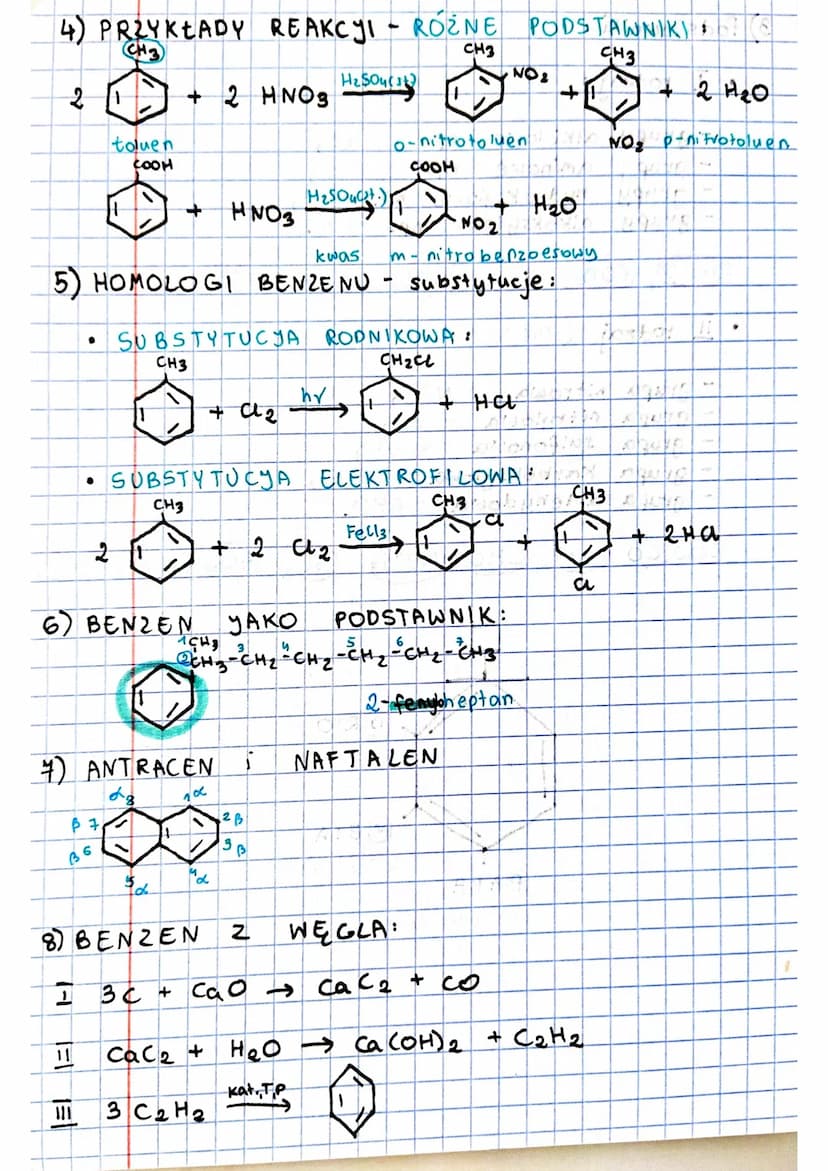 4) PRZYKŁADY REAKCJI - RÓŻNE PODSTAWNIKI:
CH3 CH3 CH3
2 + 2 HNO3 H2SO4(st.) NO2 + + 2 H2O
toluen o-nitrotoluen NO2 p-nitrotoluen
COOH COOH
+ HNO3 H2SO4(st.) NO2 + H2O
kwas m-nitrobenzoesowy
5) HOMOLOGI BENZENU - substytucje:
• SUBSTYTUCJA RODNIKOWA:
CH3 CH2Cl
+ Cl2 hν + HCl
• SUBSTYTUCJA ELEKTROFILOWA:
CH3 CH3 CH3
2 + 2 Cl2 FeCl3 Cl + + 2HCl
Cl
6) BENZEN JAKO PODSTAWNIK:
1 CH3 3 4 5 6 7
2 CH3-CH2-CH2-CH2-CH2-CH3
2-fenyloheptan
7) ANTRACEN i NAFTALEN
α8 1α
β7 2β
β6 3β
5α 4α
8) BENZEN Z WĘGLA:
I 3C + CaO → CaC2 + CO
II CaC2 + H2O → Ca(OH)2 + C2H2
III 3 C2H2 kat.,T,P →